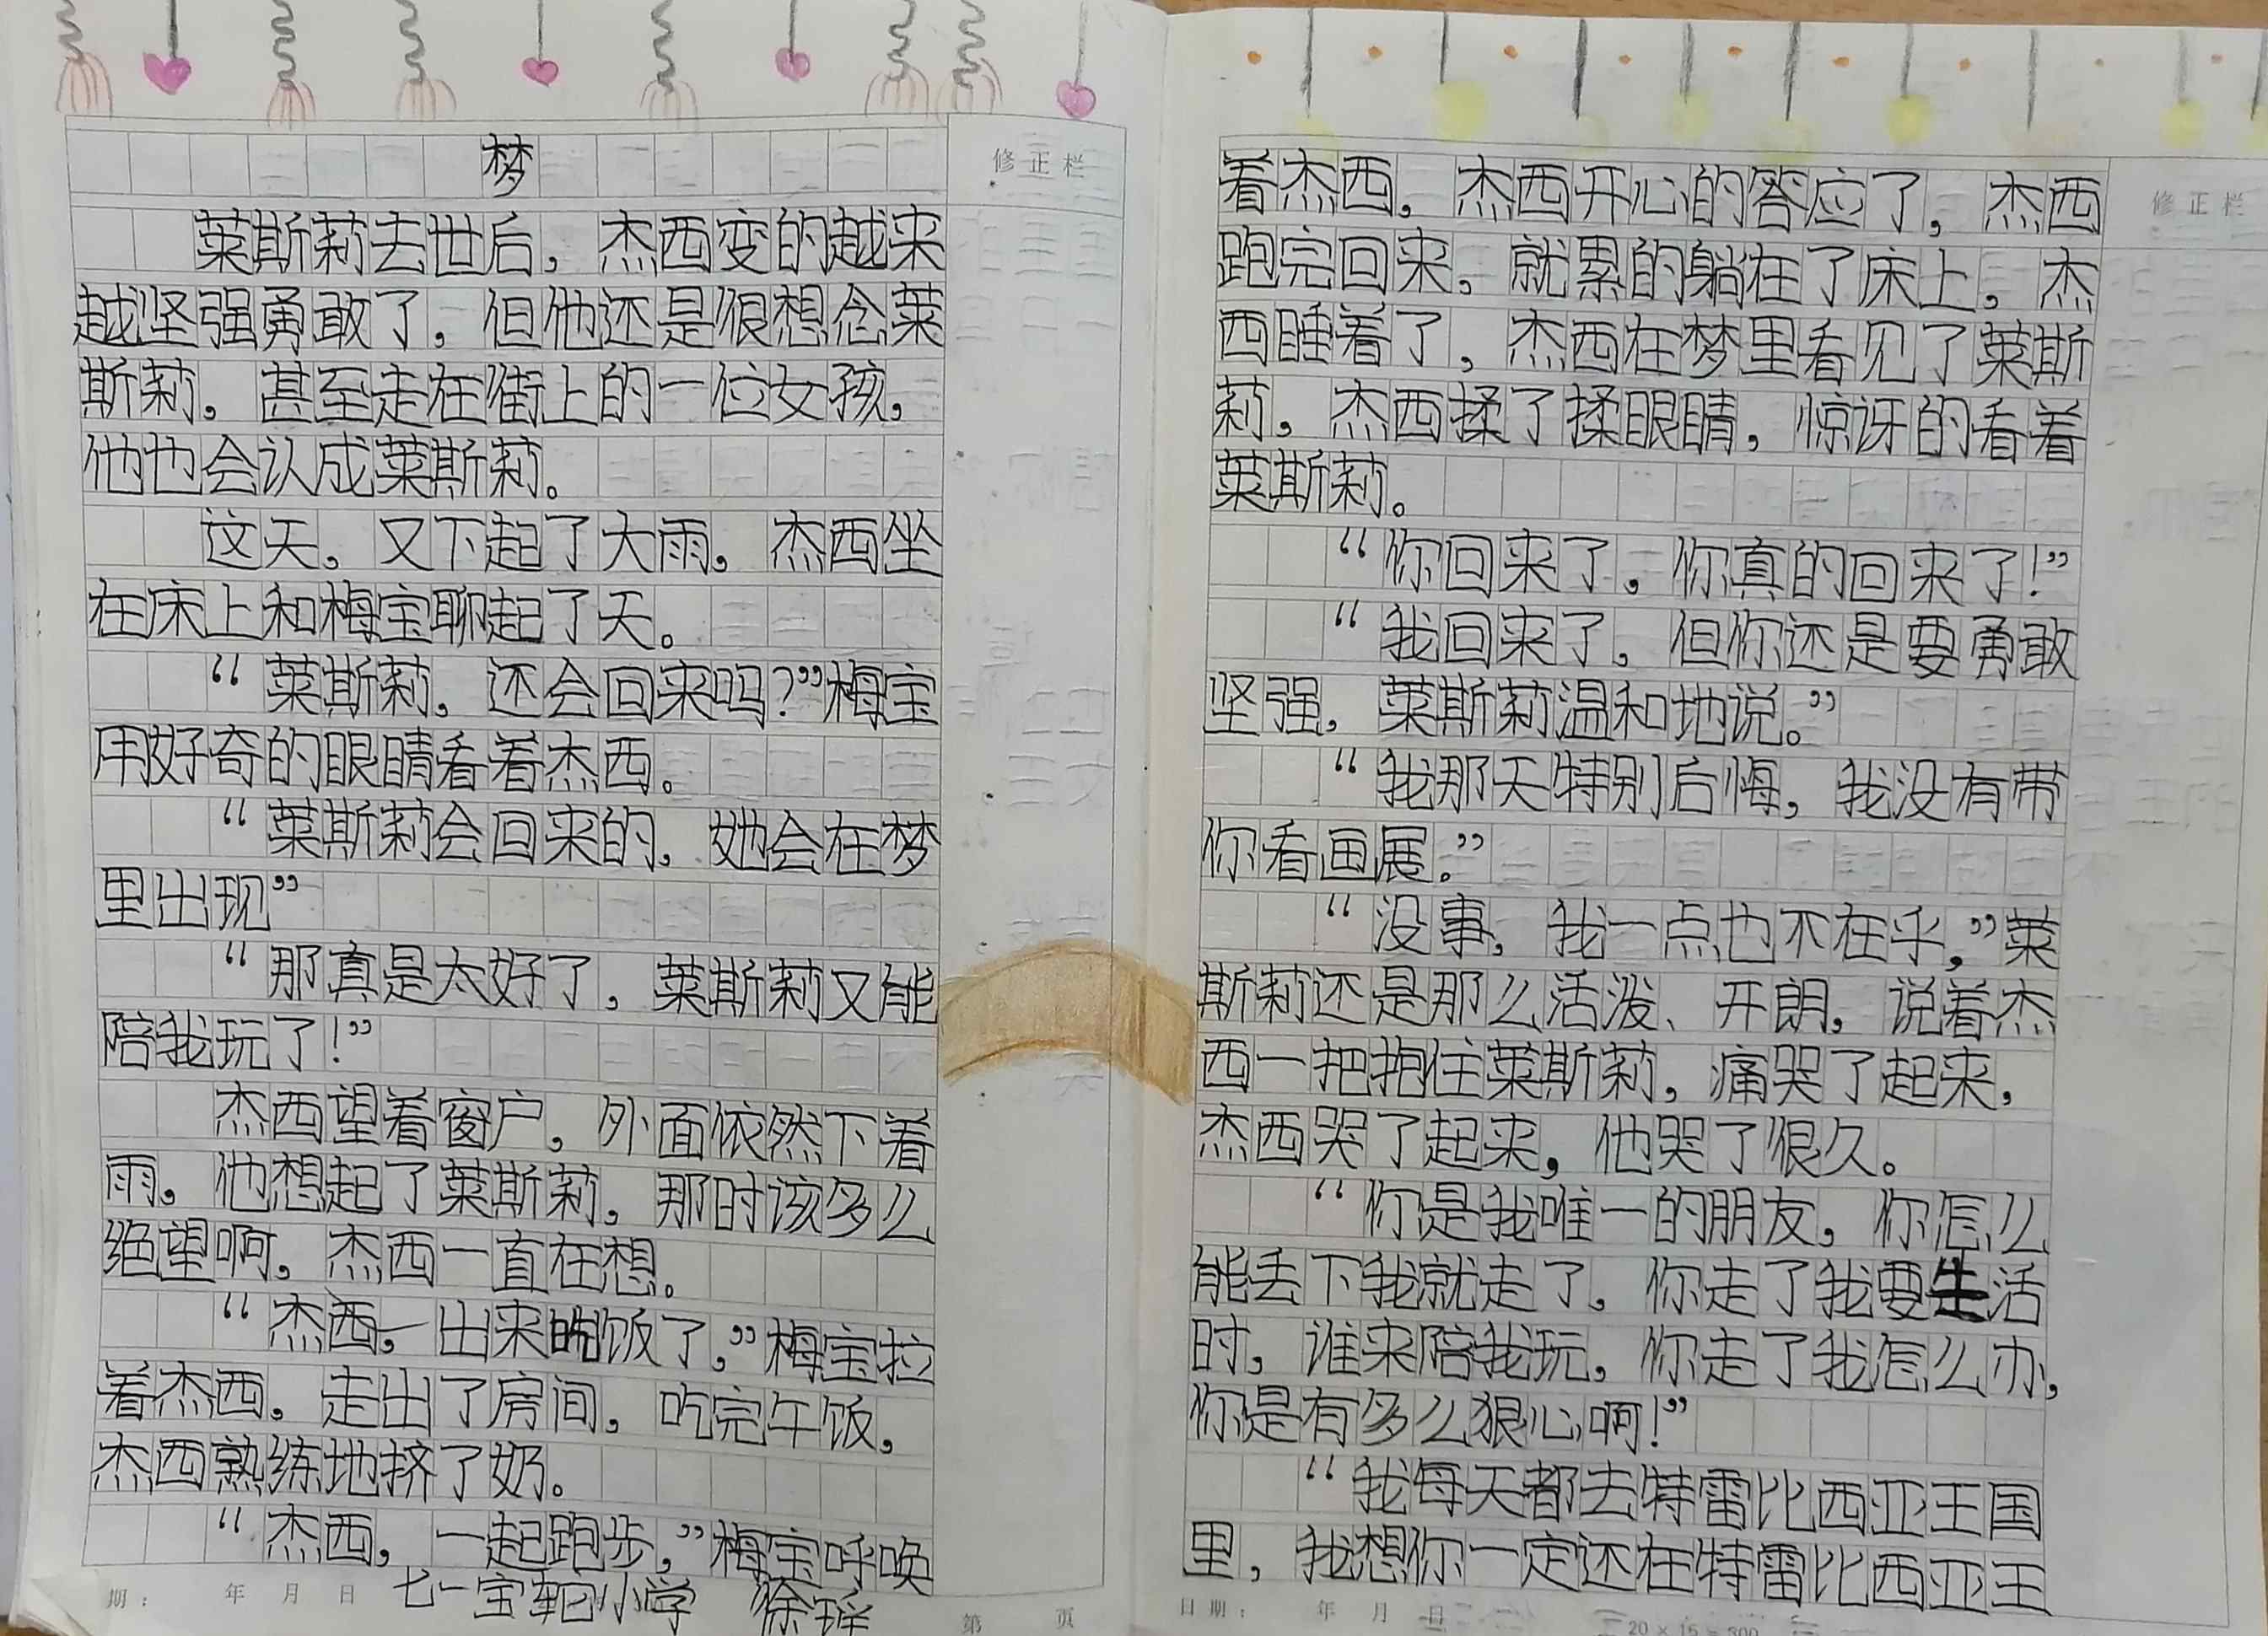 梦
修正栏
莱斯莉去世后，杰西变的越来
越坚强勇敢了，但他还是很想念莱
斯莉，甚至走在街上的一位女孩，
他也会认成莱斯莉。
这天，又下起了大雨，杰西坐
在床上和梅宝聊起了天。
“莱斯莉，还会回来吗？”梅宝
用好奇的眼睛看着杰西。
“莱斯莉会回来的，她会在梦
里出现”
“那真是太好了，莱斯莉又能
陪我玩了！”
杰西望着窗户，外面依然下着
雨，他想起了莱斯莉，那时该多么
绝望啊，杰西一直在想。
“杰西，出来吃饭了，”梅宝拉
着杰西，走出了房间，吃完午饭，
杰西熟练地挤了奶。
“杰西，一起跑步，”梅宝呼唤
期： 年 月 日 七一宝 小学 徐
第 页
修正栏
着杰西，杰西开心的答应了，杰西
跑完回来，就累的躺在了床上，杰
西睡着了，杰西在梦里看见了莱斯
莉，杰西揉了揉眼睛，惊讶的看着
莱斯莉。
“你回来了，你真的回来了！”
“我回来了，但你还是要勇敢
坚强，莱斯莉温和地说。”
“我那天特别后悔，我没有带
你看画展。”
“没事，我一点也不在乎，”莱
斯莉还是那么活泼、开朗，说着杰
西一把抱住莱斯莉，痛哭了起来，
杰西哭了起来，他哭了很久。
“你是我唯一的朋友，你怎么
能丢下我就走了，你走了我要生活
时，谁来陪我玩，你走了我怎么办，
你是有多么狠心啊！”
“我每天都去特雷比西亚王国
里，我想你一定还在特雷比西亚王
日期： 年 月 日
20×15=300